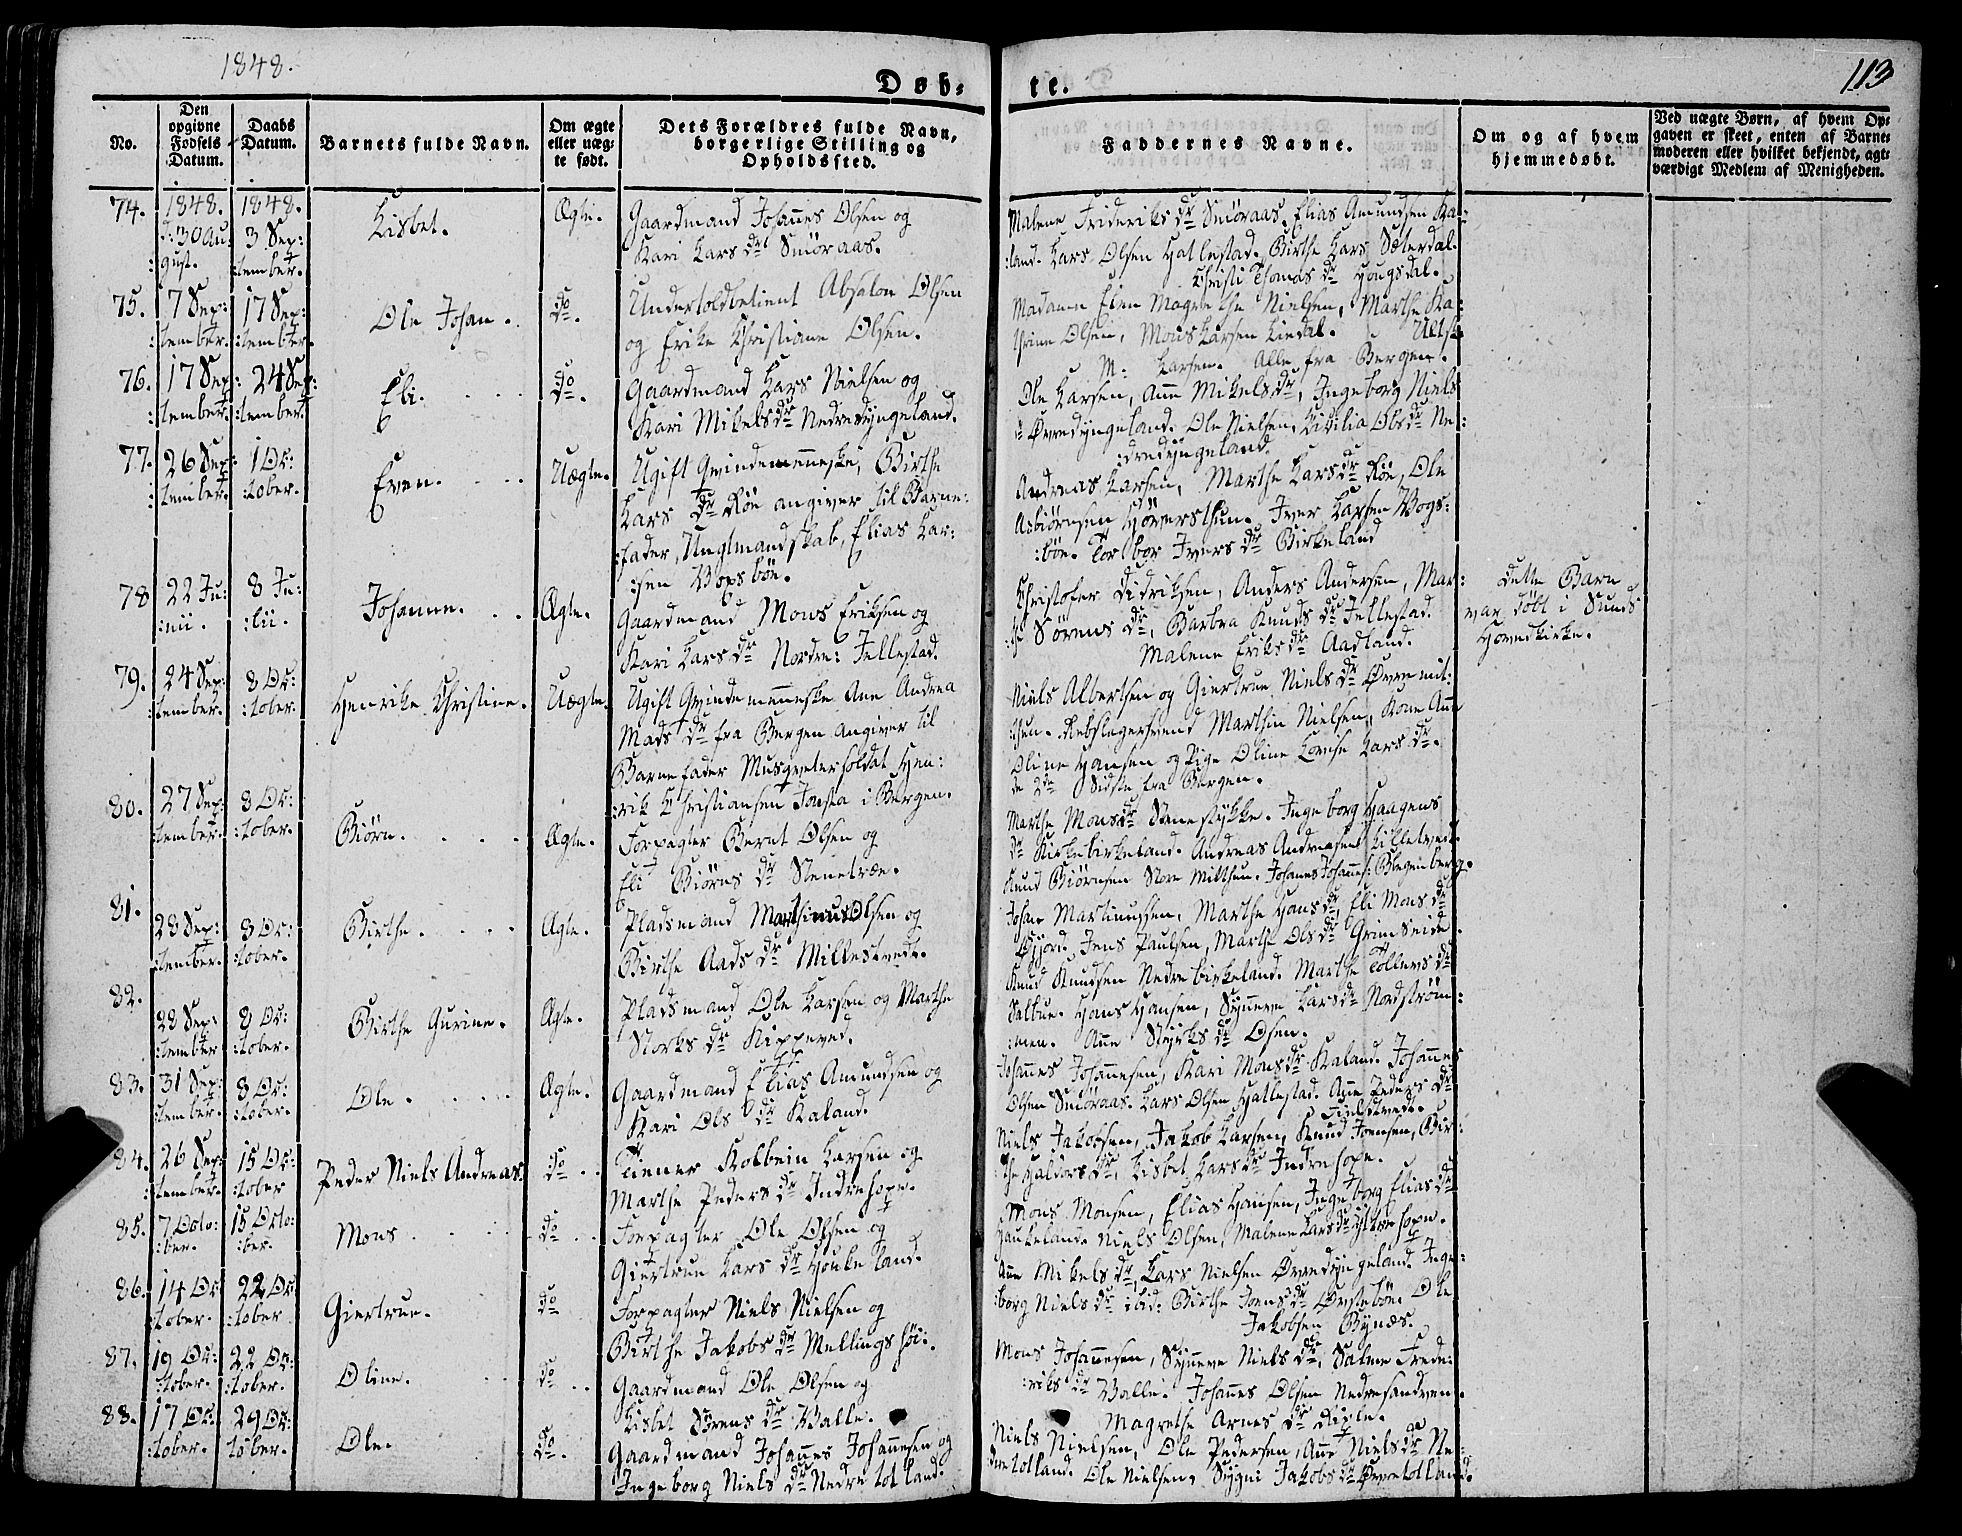 1848.
113
Døb-
te.
No.
Den opgivne Fødsels Datum.
Daabs Datum.
Barnets fulde Navn.
Om ægte eller uægte født.
Dets Forældres fulde Navn, borgerlige Stilling og Opholdssted.
Faddernes Navne.
Om og af hvem hjemmedøbt.
Ved uægte Børn, af hvem Opgaven er skeet, enten af Barnemoderen eller hvilket bekjendt, agtværdigt Medlem af Menigheden.
74.
1848.
30 Au:
gust.
1848.
3 Sep:
:tember.
Lisbet.
Ægte.
Gaardmand Johannes Olsen og
Kari Lars dr Smöraas.
Malene Frideriks dr Smöraas, Elias Amundsen Ka:
:land. Lars Olsen Hatlestad. Birthe Lars Sæterdal.
Christi Thomas dr Hougsdal.
75.
7 Sep:
:tember.
17 Sep:
:tember.
Ole Johan.
do.
Undertoldbetient Absalon Olsen
og Erike Christiane Olsen.
Madame Elen Magrethe Nielsen, Marthe Ka:
trine Olsen, Mons Larsen Liedal.
M: Larsen. Alle fra Bergen.
76.
17 Sep:
:tember.
24 Sep:
:tember.
Eli.
do.
Gaardmand Lars Nielsen og
Kari Mikels dr Nedredyngeland.
Ole Larsen, Ane Mikels dr, Ingeborg Niels
dr Øvredyngeland. Ole Nielsen, Ols dr Ne:
:dredyngeland.
77.
26 Sep:
:tember.
1 Oc:
:tober.
Even.
Uægte.
Ugift Qvindemenneske, Birthe
Lars dr Röe angiver til Barne:
:fader, Unglmandskab, Elias Lar:
:sen Vogsböe.
Andreas Larsen, Marthe Lars dr Röe, Ole
Asbiörnsen Höversthun. Iver Larsen Vogs:
:böe. Torbor Ivers dr Birkeland
78
22 Ju:
:nii.
8 Ju:
:lii.
Johanne.
Ægte.
Gaardmand Mons Eriksen og
Kari Lars dr Nordre: Jellestad.
Christofer Didriksen, Anders Andersen, Mar:
:the Sörens dr, Barbra Knuds dr Jellestad.
Malene Eriks dr Aadland.
Dette Barn
var döbt i Sunds
Hovedkirke.
79.
24 Sep:
:tember.
8 Oc:
:tober.
Henrike Christine.
Uægte.
Ugift Qvindemenneske Ane Andrea
Mads dr fra Bergen Angiver til
Barnefader Musqveter soldat Hen:
:rik Christiansen i Bergen.
Niels Albertsen og Giertrue Niels dr Øvre mil:
:thun. Rebslagersvend Marthin Nielsen, Kone Ane
Oline Hansen og Pige Oline Lovise Lars dr.
de 2de Sidste fra Bergen.
80.
27 Sep:
:tember.
8 Oc:
:tober.
Biörn.
Ægte.
Forpagter Bernt Olsen og
Eli Biörns dr Stenetræe.
Marthe Mons dr Stenestykke. Ingeborg Haagens
dr Kirkebirkeland. Andreas Andreasen Lilletvedt.
Knud Biörnsen Store Milthun. Johannes Johannes: Blegenberg.
81.
28 Sep:
:tember.
8 Oc:
:tober.
Birthe.
Ægte.
Pladsmand Marthinus Olsen og
Birthe Aads dr Millestvedt.
Johan Martinussen, Marthe Hans dr, Eli Mons dr
Jens Paulsen, Marthe Ols dr Grimseide.
Knud Knudsen Nedrebirkeland.
82.
28 Sep:
:tember
8 Oc:
:tober.
Birthe Gurine.
Ægte.
Pladsmand Ole Larsen og Marthe
Storks dr Kippeved.
Marthe Tollevs dr
Salbue. Hans Hansen, Synneve Lars dr Nordström:
:men. Ane Styrks dr Osen.
83.
31 Sep:
:tember.
8 Oc:
:tober.
Ole.
Ægte.
Gaardmand Elias Amundsen og
Kari Ols dr Kaland.
Johannes Johannesen, Kari Mons dr Kaland. Johannes
Olsen Smöraas. Lars Olsen Hatlestad. Ane Peders dr
84.
26 Sep:
:tember.
15 Oc:
:tober
Peder Niels Andreas.
do
Tiener Kolbein Larsen og
Marthe Peders dr Indrehope.
Niels Jakobsen, Jakob Larsen, Knud Joensen, Bir:
:the Haldors dr, Lisbet Lars dr Indrehope.
85.
7 Octo:
:ber.
15 Octo:
:ber.
Mons
do
Forpagter Ole Olsen og
Giertrue Lars dr Houkeland.
Mons Monsen, Elias Hansen, Ingeborg Elias dr
Haukeland. Niels Olsen, Malene Lars dr
86.
14 Oc
:tober.
22 Oc
:tober
Giertrue.
do
Forpagter Niels Nielsen og
Birthe Jakobs dr Mellingshöi:
Ane Mikels dr, Lars Nielsen Øvredyngeland. Inge:
:borg Niels dr ibid: Birthe Joens dr Øvsteböe. Ole
Jakobsen Bynæs.
87.
19 Oc:
:tober.
22 Oc:
:tober.
Oline.
do
Gaardmand Ole Olsen og
Lisbet Sörens dr Valle.
Mons Johannesen, Synneve Niels dr, Salme Frede:
:riks dr Valle. Johannes Olsen Nedresandven.
Magrethe Arnes dr Riple.
88.
17 Oc:
:tober.
29 Oc:
:tober.
Ole.
do.
Gaardmand Johannes Johannesen og
Ingeborg Niels dr Nedretotland.
Niels Nielsen, Ole Pedersen, Ane Niels dr Ne:
dretotland. Ole Nielsen, Sygni Jakobs dr Øvretotland.